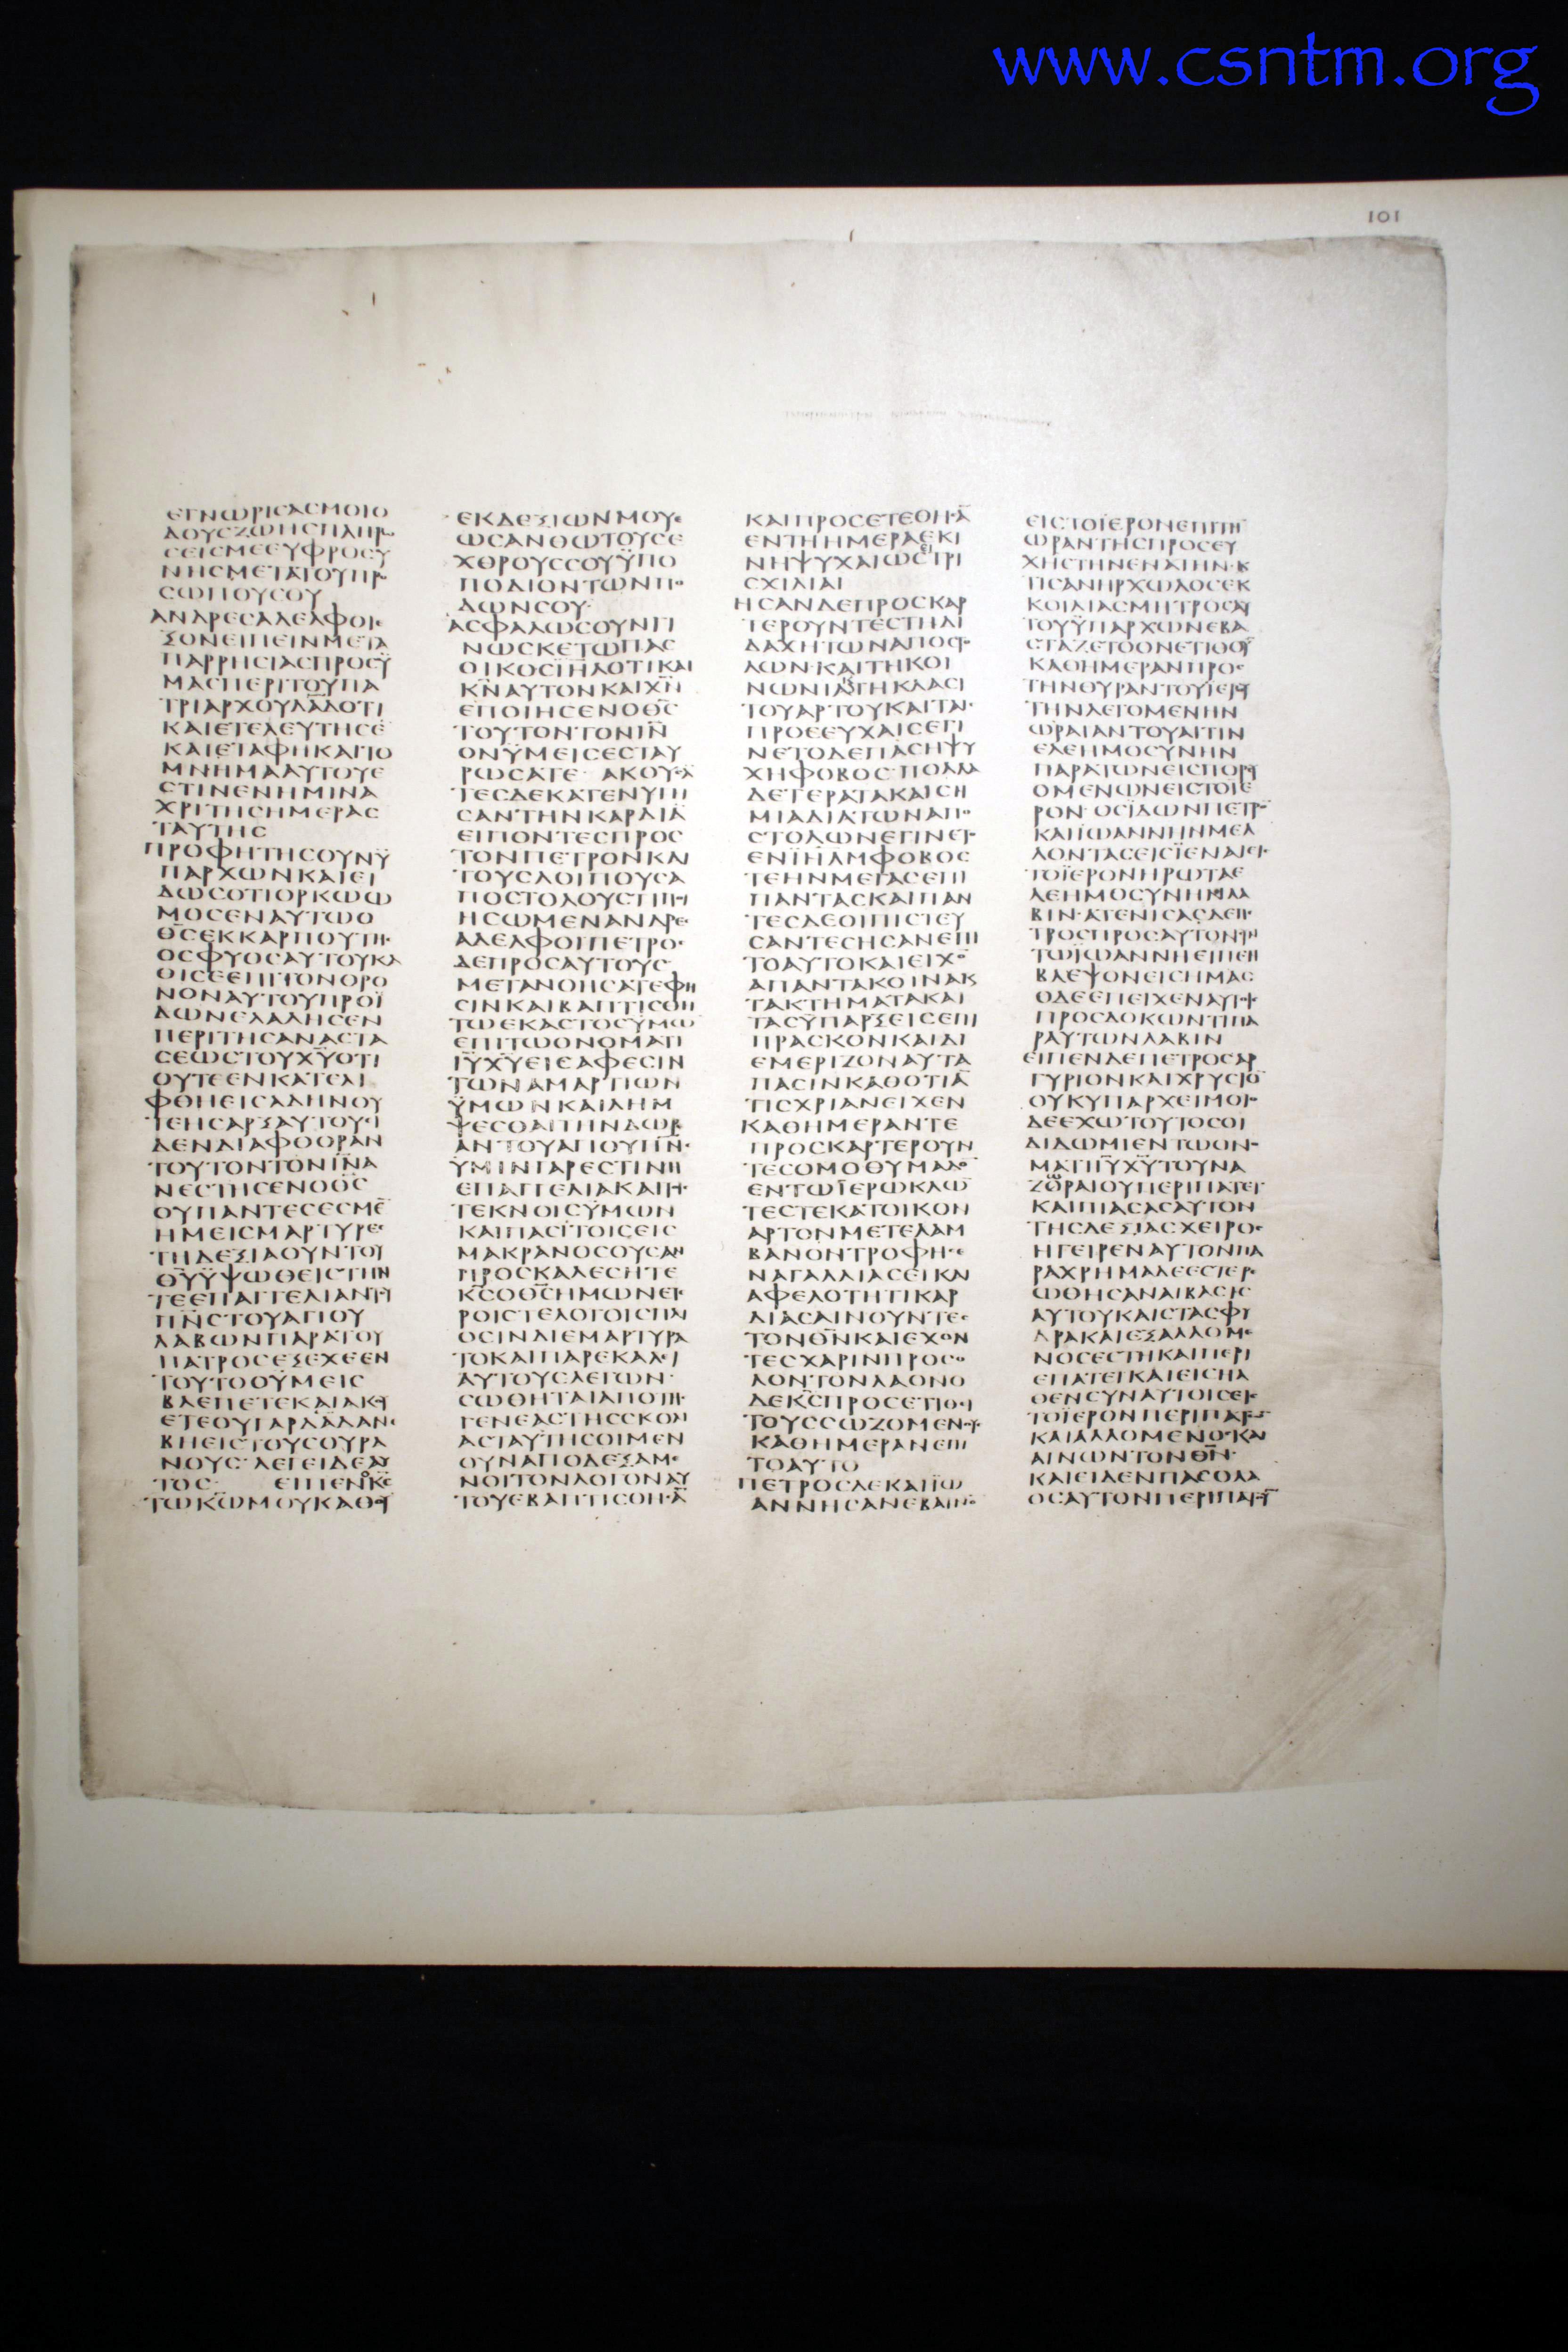 www.csntm.org
101
ΕΓΝΩΡΙCΑCΜΟΙΟ
ΔΟΥCΖΩΗCΠΛΗΡΩ
CΕΙCΜΕΕΥΦΡΟCΥ
ΝΗCΜΕΤΑΤΟΥΠΡ
CΩΠΟΥCΟΥ
ΑΝΔΡΕCΑΔΕΛΦΟΙΕ
ΞΟΝΕΙΠΕΙΝΜΕΤΑ
ΠΑΡΡΗCΙΑCΠΡΟCΫ
ΜΑCΠΕΡΙΤΟΥΠΑ
ΤΡΙΑΡΧΟΥΔΑΔΟΤΙ
ΚΑΙΕΤΕΛΕΥΤΗCΕ
ΚΑΙΕΤΑΦΗΚΑΙΤΟ
ΜΝΗΜΑΑΥΤΟΥΕ
CΤΙΝΕΝΗΜΙΝΑ
ΧΡΙΤΗCΗΜΕΡΑC
ΤΑΥΤΗC
ΠΡΟΦΗΤΗCΟΥΝΫ
ΠΑΡΧΩΝΚΑΙΕΙ
ΔΩCΟΤΙΟΡΚΩΩ
ΜΟCΕΝΑΥΤΩΟ
ΘCΕΚΚΑΡΠΟΥΤΗ
ΟCΦΥΟCΑΥΤΟΥΚΑ
ΘΙCΕΕΠΙΤΟΝΘΡΟ
ΝΟΝΑΥΤΟΥΠΡΟΪ
ΔΩΝΕΛΑΛΗCΕΝ
ΠΕΡΙΤΗCΑΝΑCΤΑ
CΕΩCΤΟΥΧΥΟΤΙ
ΟΥΤΕΕΝΚΑΤΕΛΙ
ΦΘΗΕΙCΑΔΗΝΟΥ
ΤΕΗCΑΡΞΑΥΤΟΥΙ
ΔΕΝΔΙΑΦΘΟΡΑΝ
ΤΟΥΤΟΝΤΟΝΙΝΑ
ΝΕCΤΗCΕΝΟΘC
ΟΥΠΑΝΤΕCΕCΜΕ
ΗΜΕΙCΜΑΡΤΥΡΕ
ΤΗΔΕΞΙΑΟΥΝΤΟΥ
ΘΥΫΨΩΘΕΙCΤΗΝ
ΤΕΕΠΑΓΓΕΛΙΑΝΤΥ
ΠΝCΤΟΥΑΓΙΟΥ
ΛΑΒΩΝΠΑΡΑΤΟΥ
ΠΑΤΡΟCΕΞΕΧΕΕΝ
ΤΟΥΤΟΟΫΜΕΙC
ΒΛΕΠΕΤΕΚΑΙΑΚΥ
ΕΤΕΟΥΓΑΡΔΑΔΑΝΕ
ΒΗΕΙCΤΟΥCΟΥΡΑ
ΝΟΥC·ΛΕΓΕΙΔΕΑΥ
ΤΟC ΕΙΠΕΝΟΚC
ΤΩΚΩΜΟΥΚΑΘΥ
ΕΚΔΕΞΙΩΝΜΟΥΕ
ΩCΑΝΘΩΤΟΥCΕ
ΧΘΡΟΥCCΟΥΫΠΟ
ΠΟΔΙΟΝΤΩΝΠΟ
ΔΩΝCΟΥ·
ΑCΦΑΛΩCΟΥΝΓΙ
ΝΩCΚΕΤΩΠΑC
ΟΙΚΟCΙΗΛΟΤΙΚΑΙ
ΚΝΑΥΤΟΝΚΑΙΧΝ
ΕΠΟΙΗCΕΝΟΘC
ΤΟΥΤΟΝΤΟΝΙΝ
ΟΝΫΜΕΙCΕCΤΑΥ
ΡΩCΑΤΕ ΑΚΟΥCΑ
ΤΕCΔΕΚΑΤΕΝΥΓΗ
CΑΝΤΗΝΚΑΡΔΙΑ
ΕΙΠΟΝΤΕCΠΡΟC
ΤΟΝΠΕΤΡΟΝΚΑΙ
ΤΟΥCΛΟΙΠΟΥCΑ
ΠΟCΤΟΛΟΥCΤΙΠΟΙ
ΗCΩΜΕΝΑΝΔΡΕ
ΑΔΕΛΦΟΙΠΕΤΡΟ
ΔΕΠΡΟCΑΥΤΟΥC
ΜΕΤΑΝΟΗCΑΤΕΦΗ
CΙΝΚΑΙΒΑΠΤΙCΘΗ
ΤΩΕΚΑCΤΟCΫΜΩ
ΕΠΙΤΩΟΝΟΜΑΤΙ
ΙΥΧΥΕΙCΑΦΕCΙΝ
ΤΩΝΑΜΑΡΤΙΩΝ
ΫΜΩΝΚΑΙΛΗΜ
ΨΕCΘΑΙΤΗΝΔΩΡ
ΑΝΤΟΥΑΓΙΟΥΠΝ
ΫΜΙΝΓΑΡΕCΤΙΝΗ
ΕΠΑΓΓΕΛΙΑΚΑΙΤΥ
ΤΕΚΝΟΙCΫΜΩΝ
ΚΑΙΠΑCΙΤΟΙCΕΙC
ΜΑΚΡΑΝΟCΟΥCΑΝ
ΠΡΟCΚΑΛΕCΗΤΕ
ΚCΟΘCΗΜΩΝΕΤΕ
ΡΟΙCΤΕΛΟΓΟΙCΠΛΙ
ΟCΙΝΔΙΕΜΑΡΤΥΡΑ
ΤΟΚΑΙΠΑΡΕΚΑΛΕΙ
ΑΥΤΟΥCΛΕΓΩΝ
CΩΘΗΤΑΙΑΠΟΤΗ
ΓΕΝΕΑCΤΗCCΚΟΛΙ
ΑCΤΑΥΤΗCΟΙΜΕΝ
ΟΥΝΑΠΟΔΕΞΑΜΕ
ΝΟΙΤΟΝΛΟΓΟΝΑΥ
ΤΟΥΕΒΑΠΤΙCΘΗCΑ
ΚΑΙΠΡΟCΕΤΕΘΗCΑ
ΕΝΤΗΗΜΕΡΑΕΚΙ
ΝΗΨΥΧΑΙΩCΕΙΤΡΙ
CΧΙΛΙΑΙ
ΗCΑΝΔΕΠΡΟCΚΑΡ
ΤΕΡΟΥΝΤΕCΤΗΔΙ
ΔΑΧΗΤΩΝΑΠΟCΤΟ
ΛΩΝ·ΚΑΙΤΗΚΟΙ
ΝΩΝΙΑΤΗΚΛΑCΙ
ΤΟΥΑΡΤΟΥΚΑΙΤΑΙ
ΠΡΟCΕΥΧΑΙCΕΓΙ
ΝΕΤΟΔΕΠΑCΗΨΥ
ΧΗΦΟΒΟC·ΠΟΛΛΑ
ΔΕΤΕΡΑΤΑΚΑΙCΗ
ΜΙΑΔΙΑΤΩΝΑΠΟ
CΤΟΛΩΝΕΓΙΝΕΤΟ
ΕΝΙΗΛΜΦΟΒΟC
ΤΕΗΝΜΕΓΑCΕΠΙ
ΠΑΝΤΑCΚΑΙΠΑΝ
ΤΕCΔΕΟΙΠΙCΤΕΥ
CΑΝΤΕCΗCΑΝΕΠΙ
ΤΟΑΥΤΟΚΑΙΕΙΧΟ
ΑΠΑΝΤΑΚΟΙΝΑΚ
ΤΑΚΤΗΜΑΤΑΚΑΙ
ΤΑCΫΠΑΡΞΕΙCΕΠΙ
ΠΡΑCΚΟΝΚΑΙΔΙ
ΕΜΕΡΙΖΟΝΑΥΤΑ
ΠΑCΙΝΚΑΘΟΤΙΑ
ΤΙCΧΡΙΑΝΕΙΧΕΝ
ΚΑΘΗΜΕΡΑΝΤΕ
ΠΡΟCΚΑΡΤΕΡΟΥΝ
ΤΕCΟΜΟΘΥΜΑΔΟ
ΕΝΤΩΪΕΡΩΚΛΩ
ΤΕCΤΕΚΑΤΟΙΚΟΝ
ΑΡΤΟΝΜΕΤΕΛΑΜ
ΒΑΝΟΝΤΡΟΦΗCΕ
ΝΑΓΑΛΛΙΑCΕΙΚΑΙ
ΑΦΕΛΟΤΗΤΙΚΑΡ
ΔΙΑCΑΙΝΟΥΝΤΕC
ΤΟΝΘΝΚΑΙΕΧΟΝ
ΤΕCΧΑΡΙΝΠΡΟCΟ
ΛΟΝΤΟΝΛΑΟΝΟ
ΔΕΚCΠΡΟCΕΤΙΘΕΙ
ΤΟΥCCΩΖΟΜΕΝΟΥ
ΚΑΘΗΜΕΡΑΝΕΠΙ
ΤΟΑΥΤΟ
ΠΕΤΡΟCΔΕΚΑΙΪΩ
ΑΝΝΗCΑΝΕΒΑΙΝΟ
ΕΙCΤΟΪΕΡΟΝΕΠΙΤΗ
ΩΡΑΝΤΗCΠΡΟCΕΥ
ΧΗCΤΗΝΕΝΑΤΗΝ·Κ
ΤΙCΑΝΗΡΧΩΛΟCΕΚ
ΚΟΙΛΙΑCΜΗΤΡΟCΑΥ
ΤΟΥΫΠΑΡΧΩΝΕΒΑ
CΤΑΖΕΤΟΟΝΕΤΙΘΟΥ
ΚΑΘΗΜΕΡΑΝΠΡΟC
ΤΗΝΘΥΡΑΝΤΟΥΪΕΡΥ
ΤΗΝΛΕΓΟΜΕΝΗΝ
ΩΡΑΙΑΝΤΟΥΑΙΤΙΝ
ΕΛΕΗΜΟCΥΝΗΝ
ΠΑΡΑΤΩΝΕΙCΠΟΡΥ
ΟΜΕΝΩΝΕΙCΤΟΪΕ
ΡΟΝ·ΟCΪΔΩΝΠΕΤΡ
ΚΑΙΪΩΑΝΝΗΝΜΕΛ
ΛΟΝΤΑCΕΙCΪΕΝΑΙΕΙC
ΤΟΪΕΡΟΝΗΡΩΤΑΕ
ΛΕΗΜΟCΥΝΗΝΛΑ
ΒΙΝ·ΑΤΕΝΙCΑCΔΕΠΕ
ΤΡΟCΠΡΟCΑΥΤΟΝCΥΝ
ΤΩΪΩΑΝΝΗΕΙΠΕΝ
ΒΛΕΨΟΝΕΙCΗΜΑC
ΟΔΕΕΠΕΙΧΕΝΑΥΤΟΙC
ΠΡΟCΔΟΚΩΝΤΙΠΑ
ΡΑΥΤΩΝΛΑΒΙΝ
ΕΙΠΕΝΔΕΠΕΤΡΟCΑΡ
ΓΥΡΙΟΝΚΑΙΧΡΥCΙΟ
ΟΥΚΥΠΑΡΧΕΙΜΟΙΟ
ΔΕΕΧΩΤΟΥΤΟCΟΙ
ΔΙΔΩΜΙΕΝΤΩΟΝΟ
ΜΑΤΙΙΥΧΥΤΟΥΝΑ
ΖΩΡΑΙΟΥΠΕΡΙΠΑΤΕΙ
ΚΑΙΠΙΑCΑCΑΥΤΟΝ
ΤΗCΔΕΞΙΑCΧΕΙΡΟC
ΗΓΕΙΡΕΝΑΥΤΟΝΠΑ
ΡΑΧΡΗΜΑΔΕΕCΤΕΡΕ
ΩΘΗCΑΝΑΙΒΑCΙC
ΑΥΤΟΥΚΑΙCΤΑCΦΥ
ΔΡΑΚΑΙΕΞΑΛΛΟΜΕ
ΝΟCΕCΤΗΚΑΙΠΕΡΙ
ΕΠΑΤΕΙΚΑΙΕΙCΗΛ
ΘΕΝCΥΝΑΥΤΟΙCΕΙC
ΤΟΪΕΡΟΝΠΕΡΙΠΑΤΩ
ΚΑΙΑΛΛΟΜΕΝΟCΚΑΙ
ΑΙΝΩΝΤΟΝΘΝ·
ΚΑΙΕΙΔΕΝΠΑCΟΛΑ
ΟCΑΥΤΟΝΠΕΡΙΠΑΤΥ